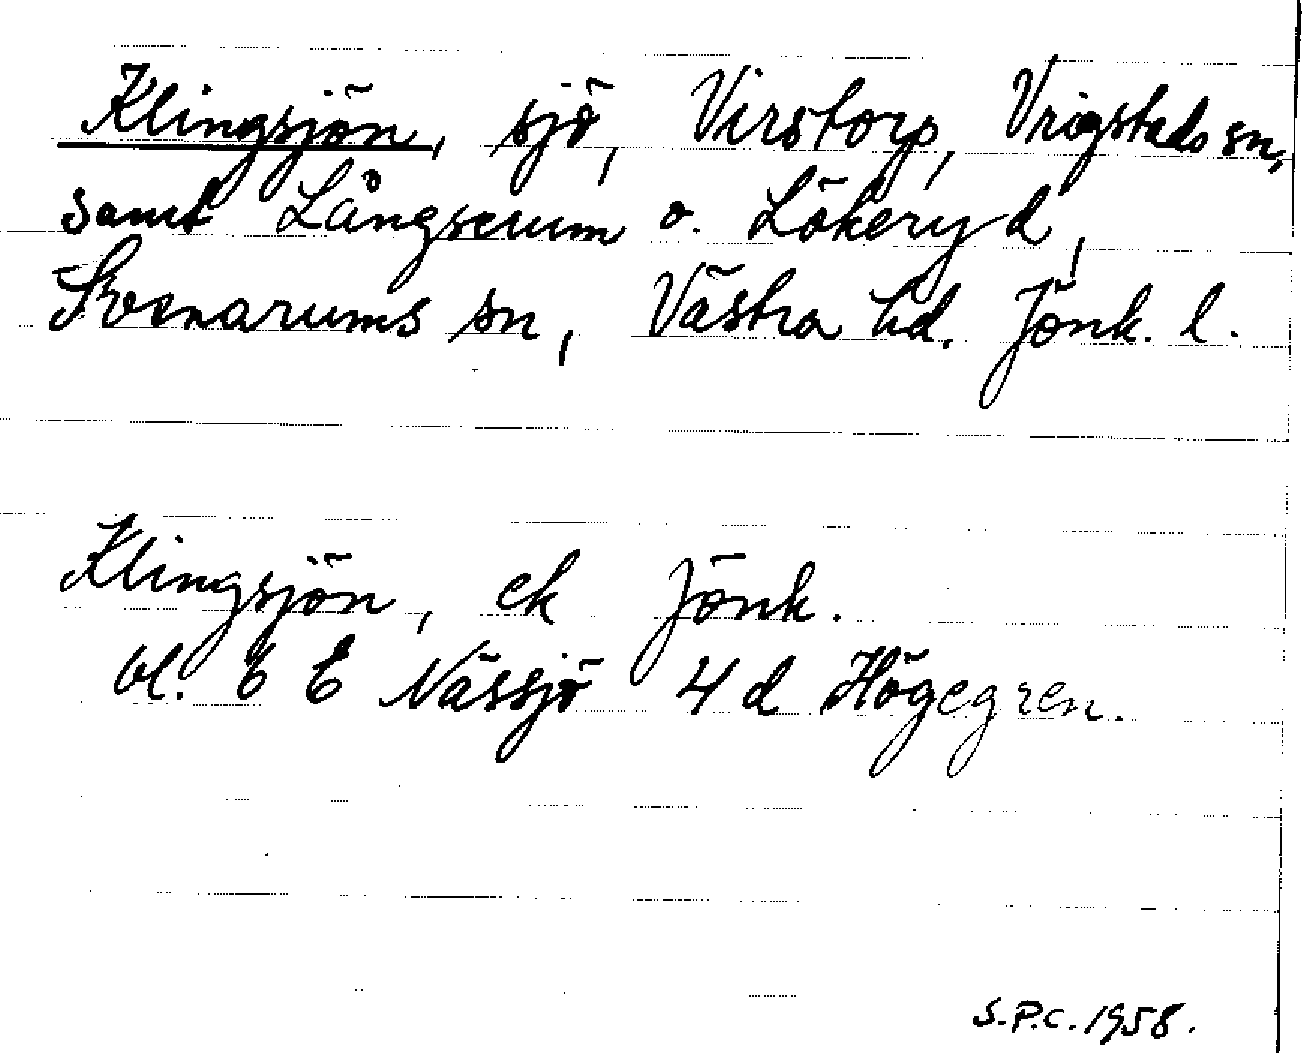 Klingsjön, sjö, Virstorp, Vrigstads sn,
samt Långserum o. Lökeryd,
Svenarums sn, Västra hd. Jönk. l.
Klingsjön, ek Jönk.
bl. 6 E Nässjö 4 d Högegren.
S.P.C. 1958.